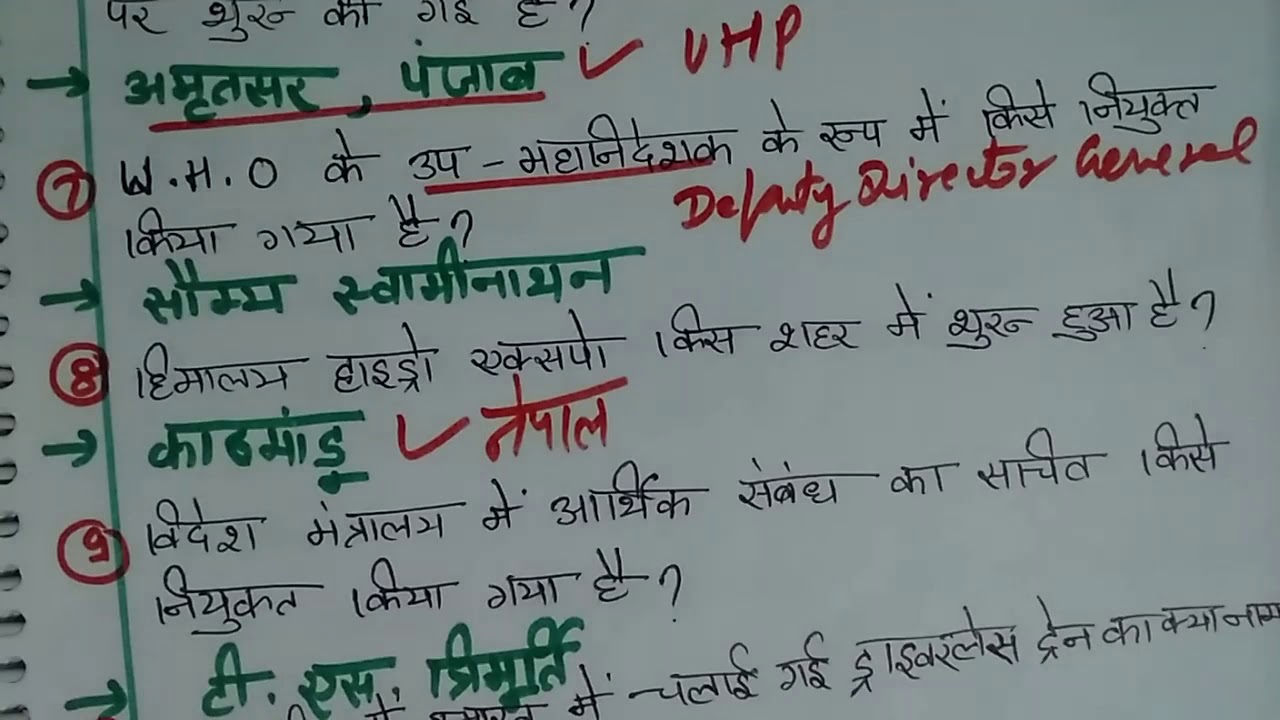 पर शुरू की गई है?
→ अमृतसर, पंजाब ✓ VHP
⑦ W.H.O के उप-महानिदेशक के रूप में किसे नियुक्त
Deputy Director General
किया गया है?
→ सौम्य स्वामीनाथन
⑧ हिमालय हाइड्रो एक्सपो किस शहर में शुरू हुआ है?
→ काठमांडू ✓ नेपाल
⑨ विदेश मंत्रालय में आर्थिक संबंध का सचिव किसे
नियुक्त किया गया है?
→ टी. एस. त्रिमूर्ति
में चलाई गई ड्राइवरलेस ट्रेन का क्या नाम